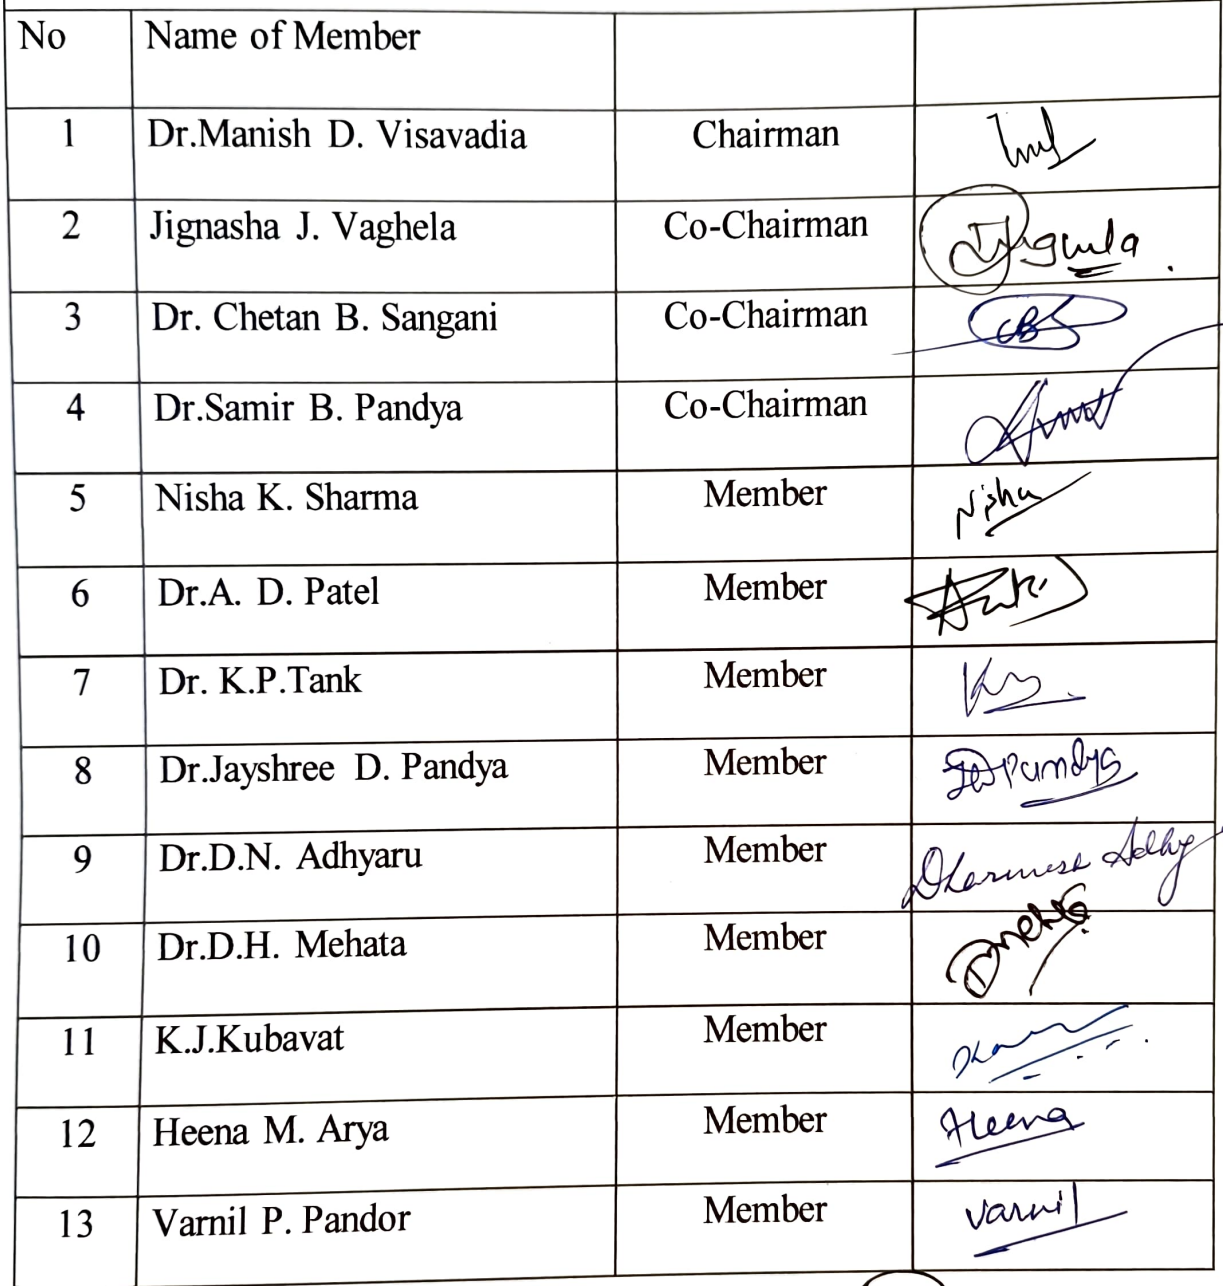 No Name of Member
1 Dr.Manish D. Visavadia Chairman
2 Jignasha J. Vaghela Co-Chairman
3 Dr. Chetan B. Sangani Co-Chairman CBS
4 Dr.Samir B. Pandya Co-Chairman
5 Nisha K. Sharma Member Nisha
6 Dr.A. D. Patel Member
7 Dr. K.P.Tank Member
8 Dr.Jayshree D. Pandya Member JDPandya
9 Dr.D.N. Adhyaru Member
10 Dr.D.H. Mehata Member
11 K.J.Kubavat Member
12 Heena M. Arya Member Heena
13 Varnil P. Pandor Member Varnil